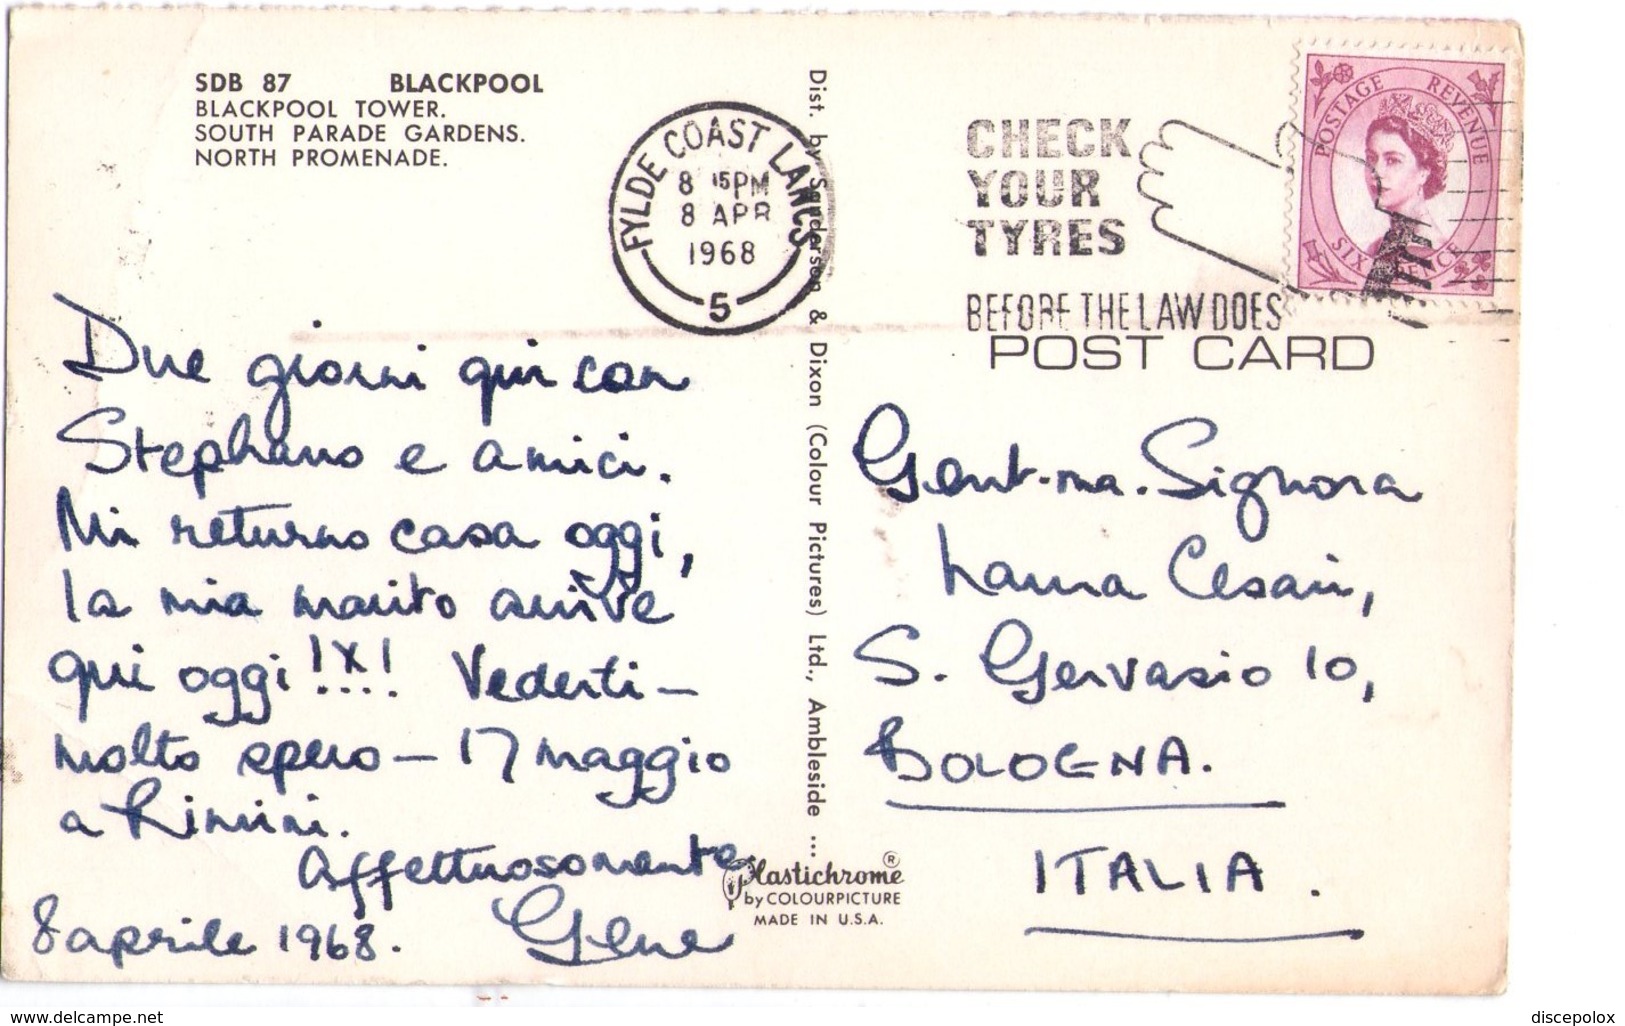 SDB 87 BLACKPOOL
BLACKPOOL TOWER.
SOUTH PARADE GARDENS.
NORTH PROMENADE.
FYLDE COAST LANCS
8 15PM
8 APR
1968
5
CHECK
YOUR
TYRES
BEFORE THE LAW DOES
POSTAGE REVENUE
SIXPENCE
POST CARD
Due giorni qui con
Stephano e amici.
Mi returno casa oggi,
la mia marito arrive
qui oggi !X! Vederti –
molto spero – 17 maggio
a Rimini.
Affettuosomente
8 aprile 1968.
Dist. by Sanderson & Dixon (Colour Pictures) Ltd., Ambleside ...
Plastichrome ®
by COLOURPICTURE
MADE IN U.S.A.
Gent.ma. Signora
Laura Cesari,
S. Gervasio 10,
BOLOGNA.
ITALIA.
www.delcampe.net
discepolox